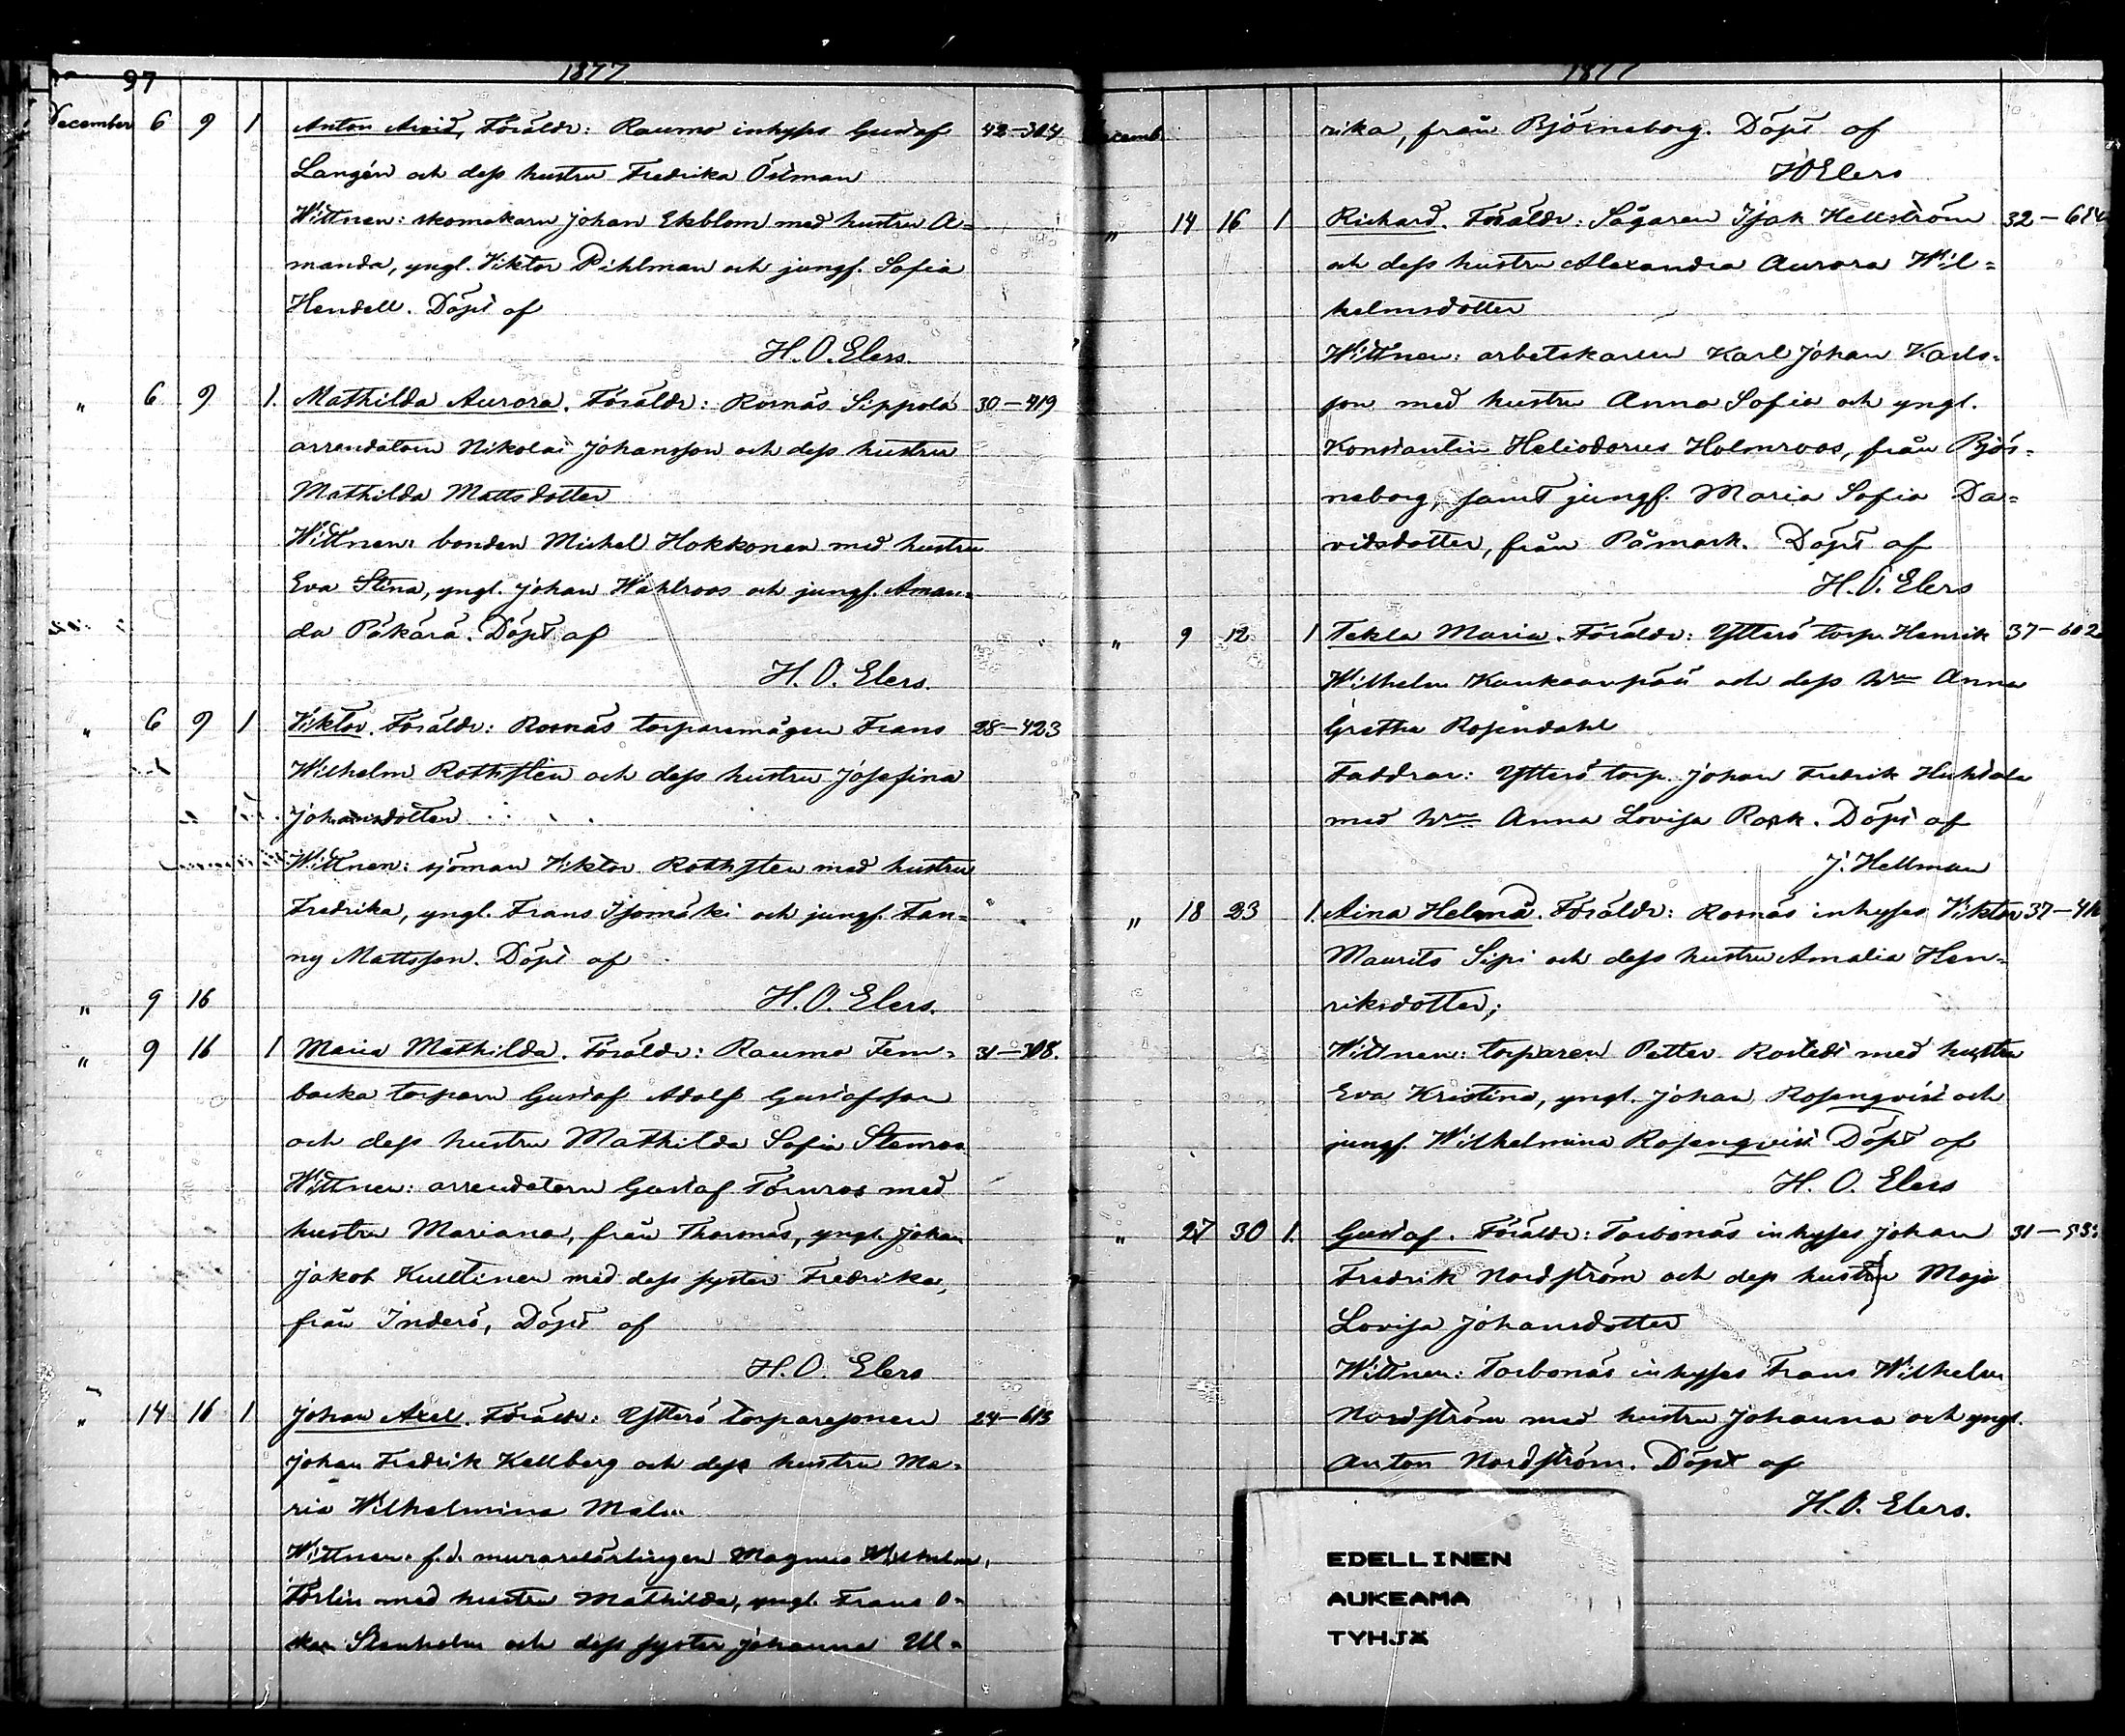 97 1877
December 6 9 1 Anton Arvid, Föräldr: Raumo inhyses Gustaf 42-304
Langén och dess hustru Fredrika Östman
Wittnen: skomakaren Johan Ekblom med hustru A=
manda, yngl. Viktor Pihlman och jungf. Sofia
Hendell. Döpt af
H. O. Elers.
" 6 9 1. Mathilda Aurora. Föräldr: Rosnäs Sippola 30-419
arrendatorn Nikolai Johansson och dess hustru
Mathilda Mattsdotter
Wittnen: bonden Michel Hokkonen med hustru
Eva Stina, yngl. Johan Wahlroos och jungf. Aman=
da Päkärä. Döpt af
H. O. Elers.
" 6 9 1 Viktor. Föräldr: Rosnäs torparemågen Frans 28-423
Wilhelm Rothsten och dess hustru Josefina
Johansdotter
Wittnen: sjöman Viktor Rothsten med hustru
Fredrika, yngl. Frans Isomäki och jungf. Fan=
ny Mattsson. Döpt af
" 9 16 H. O. Elers.
" 9 16 1 Maria Mathilda. Föräldr: Raumo Fem= 31-308.
backa torparn Gustaf Adolf Gustafsson
och dess hustru Mathilda Sofia Stenroos
Wittnen: arrendatorn Gustaf Törnroos med
hustru Mariana, från Thorsnäs, yngl. Johan
Jakob Kulltinen med dess syster Fredrika,
från Inderö, Döpt af
H. O. Elers
" 14 16 1 Johan Axel. Föräldr: Ytterö torparesonen 24-613
Johan Fredrik Kellberg och dess hustru Ma=
ria Wilhelmina Malm
Wittnen: f.d. murarelärlingen Magnus Wilhelm
Törlin med hustru Mathilda, yngl. Frans O=
skar Stenholm och dess syster Johanna Ul=
1877
Decemb. rika, från Björneborg. Döpt af
HOElers
" 14 16 1 Richard. Föräldr: Sågaren Isak Hellström 32-614
och dess hustru Alexandra Aurora Wil=
helmsdotter
Wittnen: arbetskarlen Karl Johan Karls=
son med hustru Anna Sofia och yngl.
Konstantin Heliodorus Holmroos, från Björ=
neborg, samt jungf. Maria Sofia Da=
vidsdotter, från Påmark. Döpt af
H. O. Elers
" 9 12 1 Tekla Maria. Föräldr: Ytterö torp. Henrik 37-602
Wilhelm Kankaanpää och dess h:u Anna
Gretha Rosendahl
Faddrar: Ytterö torp. Johan Fredrik Huhtala
med h:u Anna Lovisa Rask. Döpt af
J. Hellman
" 18 23 1. Aina Helena. Föräldr: Rosnäs inhyses Viktor 37-
Maurits Sipi och dess hustru Amalia Hen=
riksdotter;
Wittnen: torparen Petter Rostedt med hustru
Eva Kristina, yngl. Johan Rosenqvist och
jungf. Wilhelmina Rosenqvist Döpt af
H. O. Elers
" 27 30 1. Gustaf. Föräldr: Torbonäs inhyses Johan 31-
Fredrik Nordström och dess hustru Maja
Lovisa Johansdotter
Wittnen: Torbonäs inhyses Frans Wilhelm
Nordström med hustru Johanna och yngl.
Anton Nordström. Döpt af
H. O. Elers.
EDELLINEN
AUKEAMA
TYHJÄ